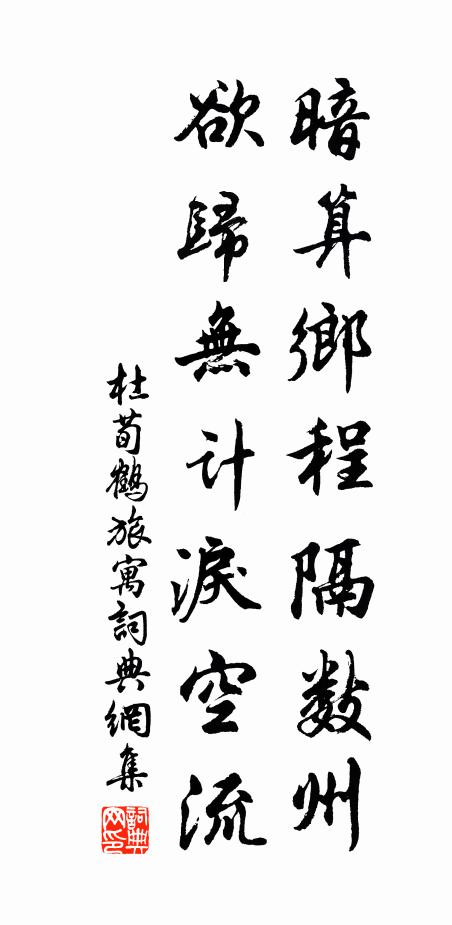 暗算鄉程隔数州
欲歸無计淚空流
杜荀鶴旅寓詞典網集
詞典
网印